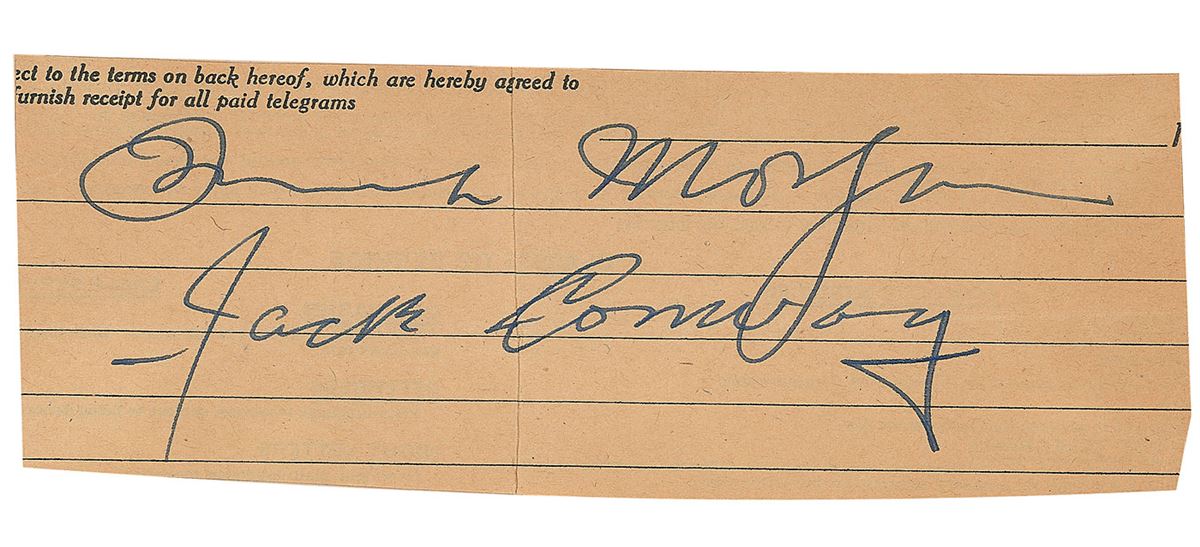 ect to the terms on back hereof, which are hereby agreed to
furnish receipt for all paid telegrams
Frank Morgan
Jack Conway